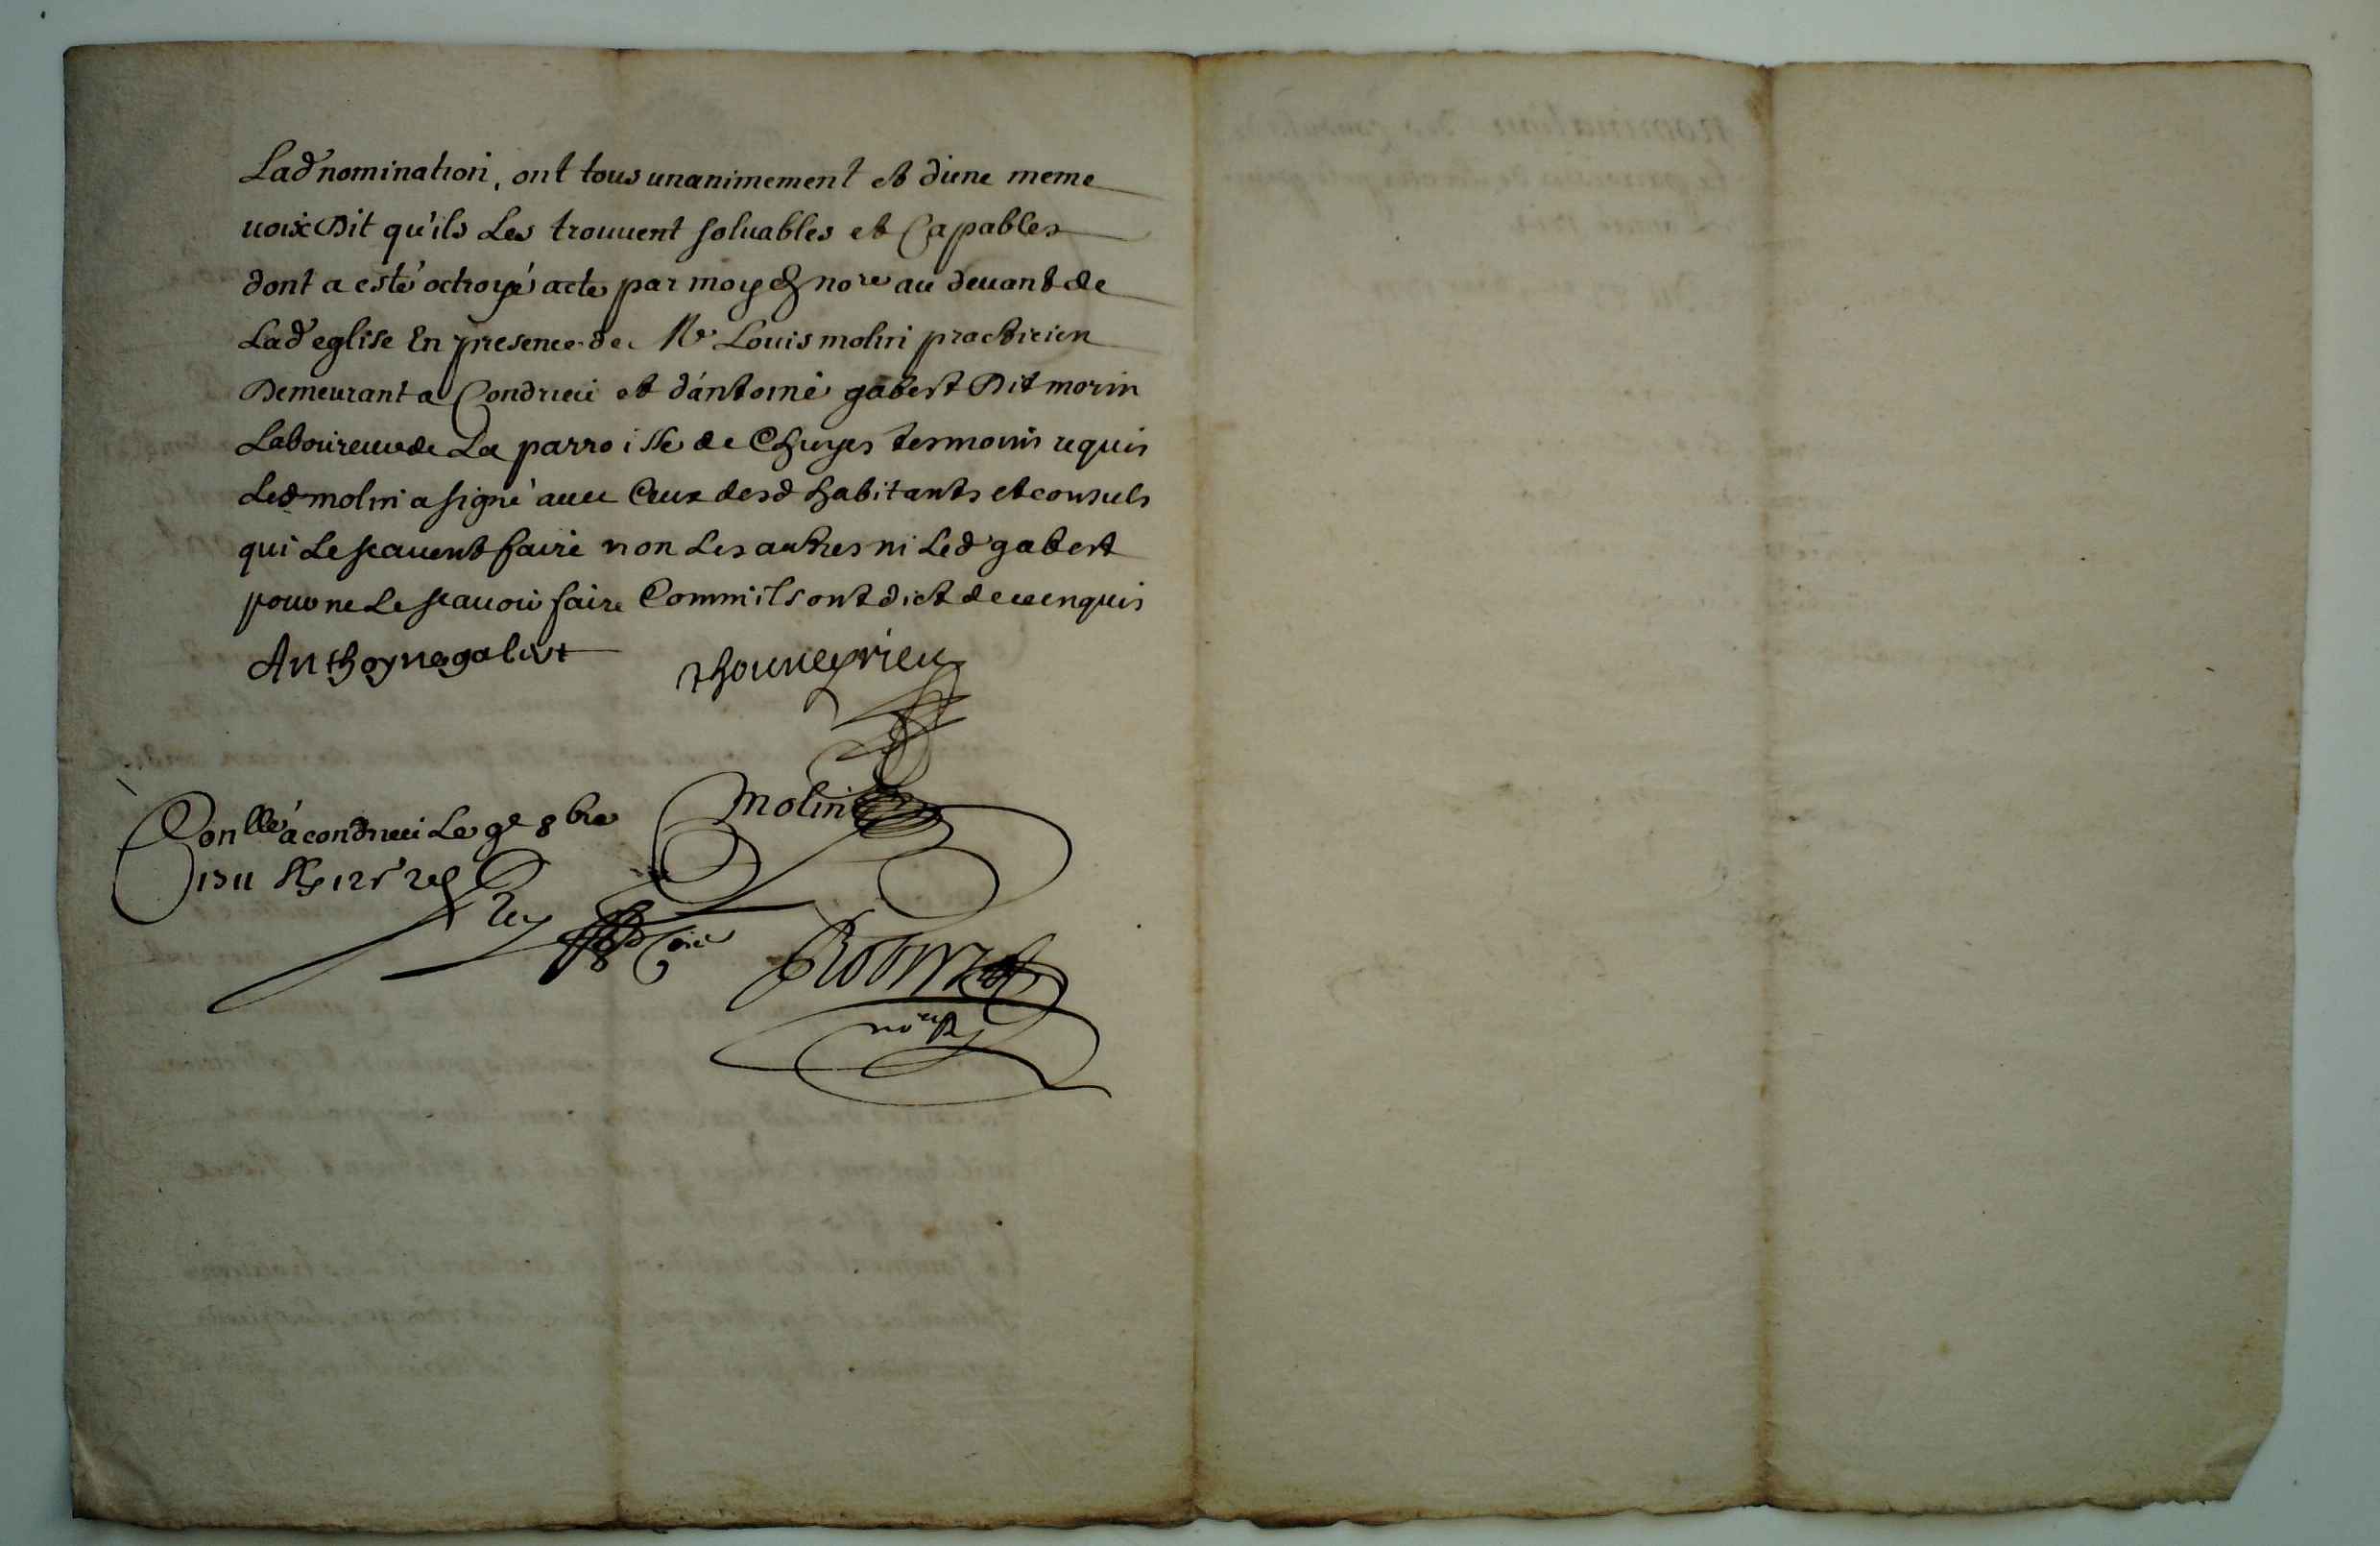 Lad nomination, ont tous unanimement et d'une meme
voix Dit qu'ils Les trouuent soluables et Capables
dont a esté octroyé acte par moy d nore au deuant de
Lad eglise En presence de Me Louis molin practicien
Demeurant a Condrieu et d'antoine gabert Dit morin
Laboureur de La parroisse de Chuyes tesmoins requis
Led molin a signé auec Ceux desd habitants et consuls
qui Le scauent faire non Les autres ni Led gabert
pour ne Le scauoir faire Comm'ils ont dict de ce enquis
Anthoyne galert
thouneyrieu
molin
Conlle a condrieu Le 9e 8bre
1711 12s
Rey
Robin
nore